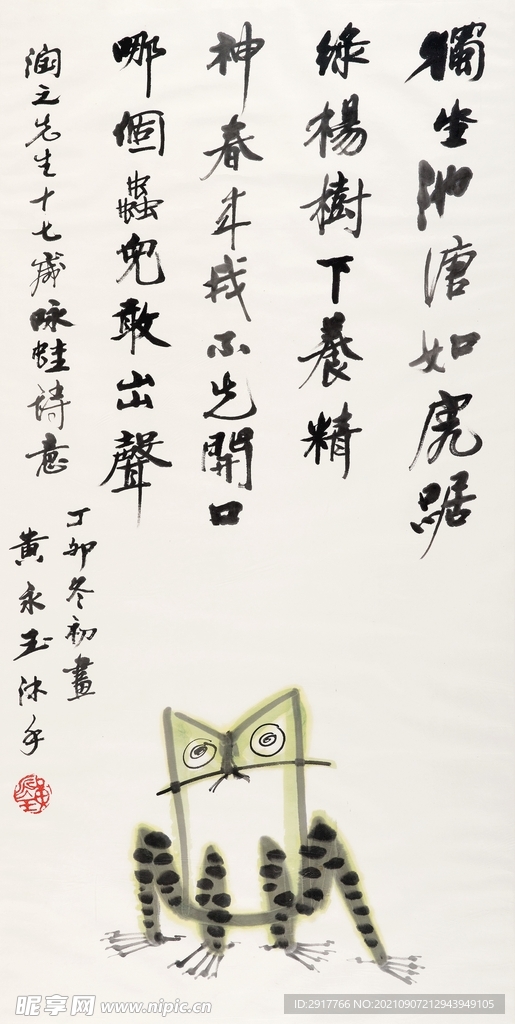 獨坐池塘如虎踞
綠楊樹下養精
神春來我不先開口
哪個蟲兒敢出聲
潤之先生十七歲咏蛙詩意
丁卯冬初畫
黄永玉沐手
昵享网 www.nipic.cn
ID:2917766 NO:20210907212943949105